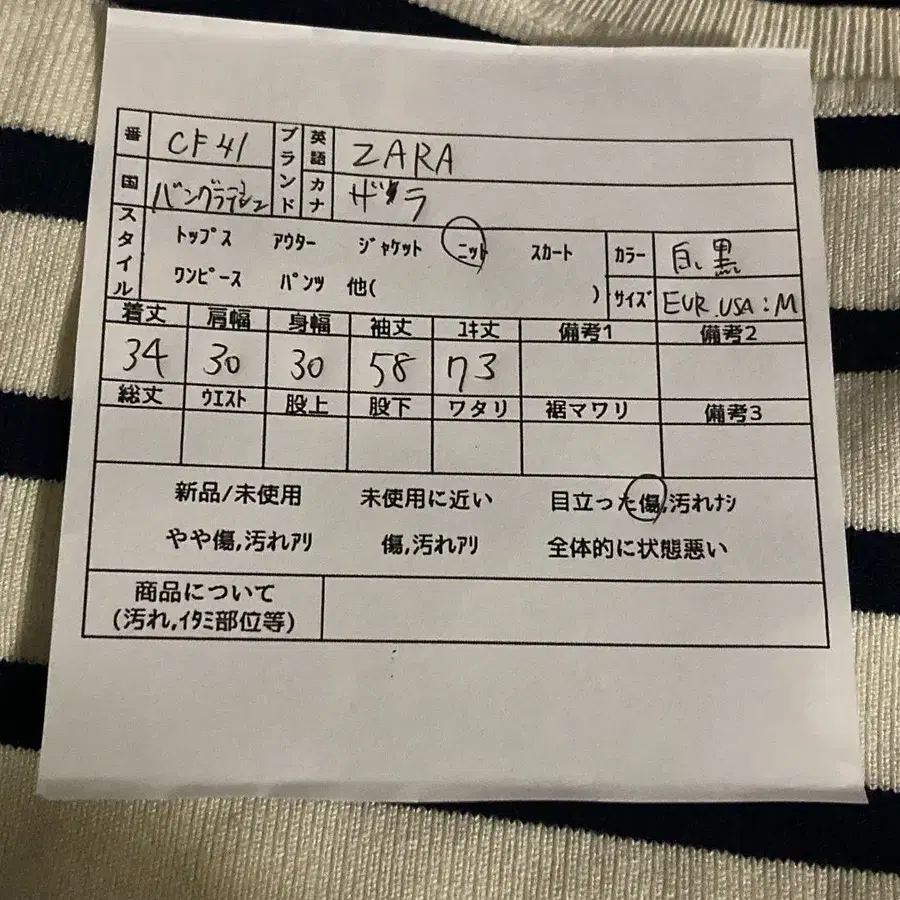 番 CF41 ブランド 英語 ZARA
国 バングラデシュ カナ ザラ
スタイル トップス アウター ジャケット ニット スカート カラー 白、黒
ワンピース パンツ 他( ) サイズ EUR.USA:M
着丈 肩幅 身幅 袖丈 ユキ丈 備考1 備考2
34 30 30 58 73
総丈 ウエスト 股上 股下 ワタリ 裾マワリ 備考3
新品/未使用 未使用に近い 目立った傷,汚れナシ
やや傷,汚れアリ 傷,汚れアリ 全体的に状態悪い
商品について
(汚れ,イタミ部位等)